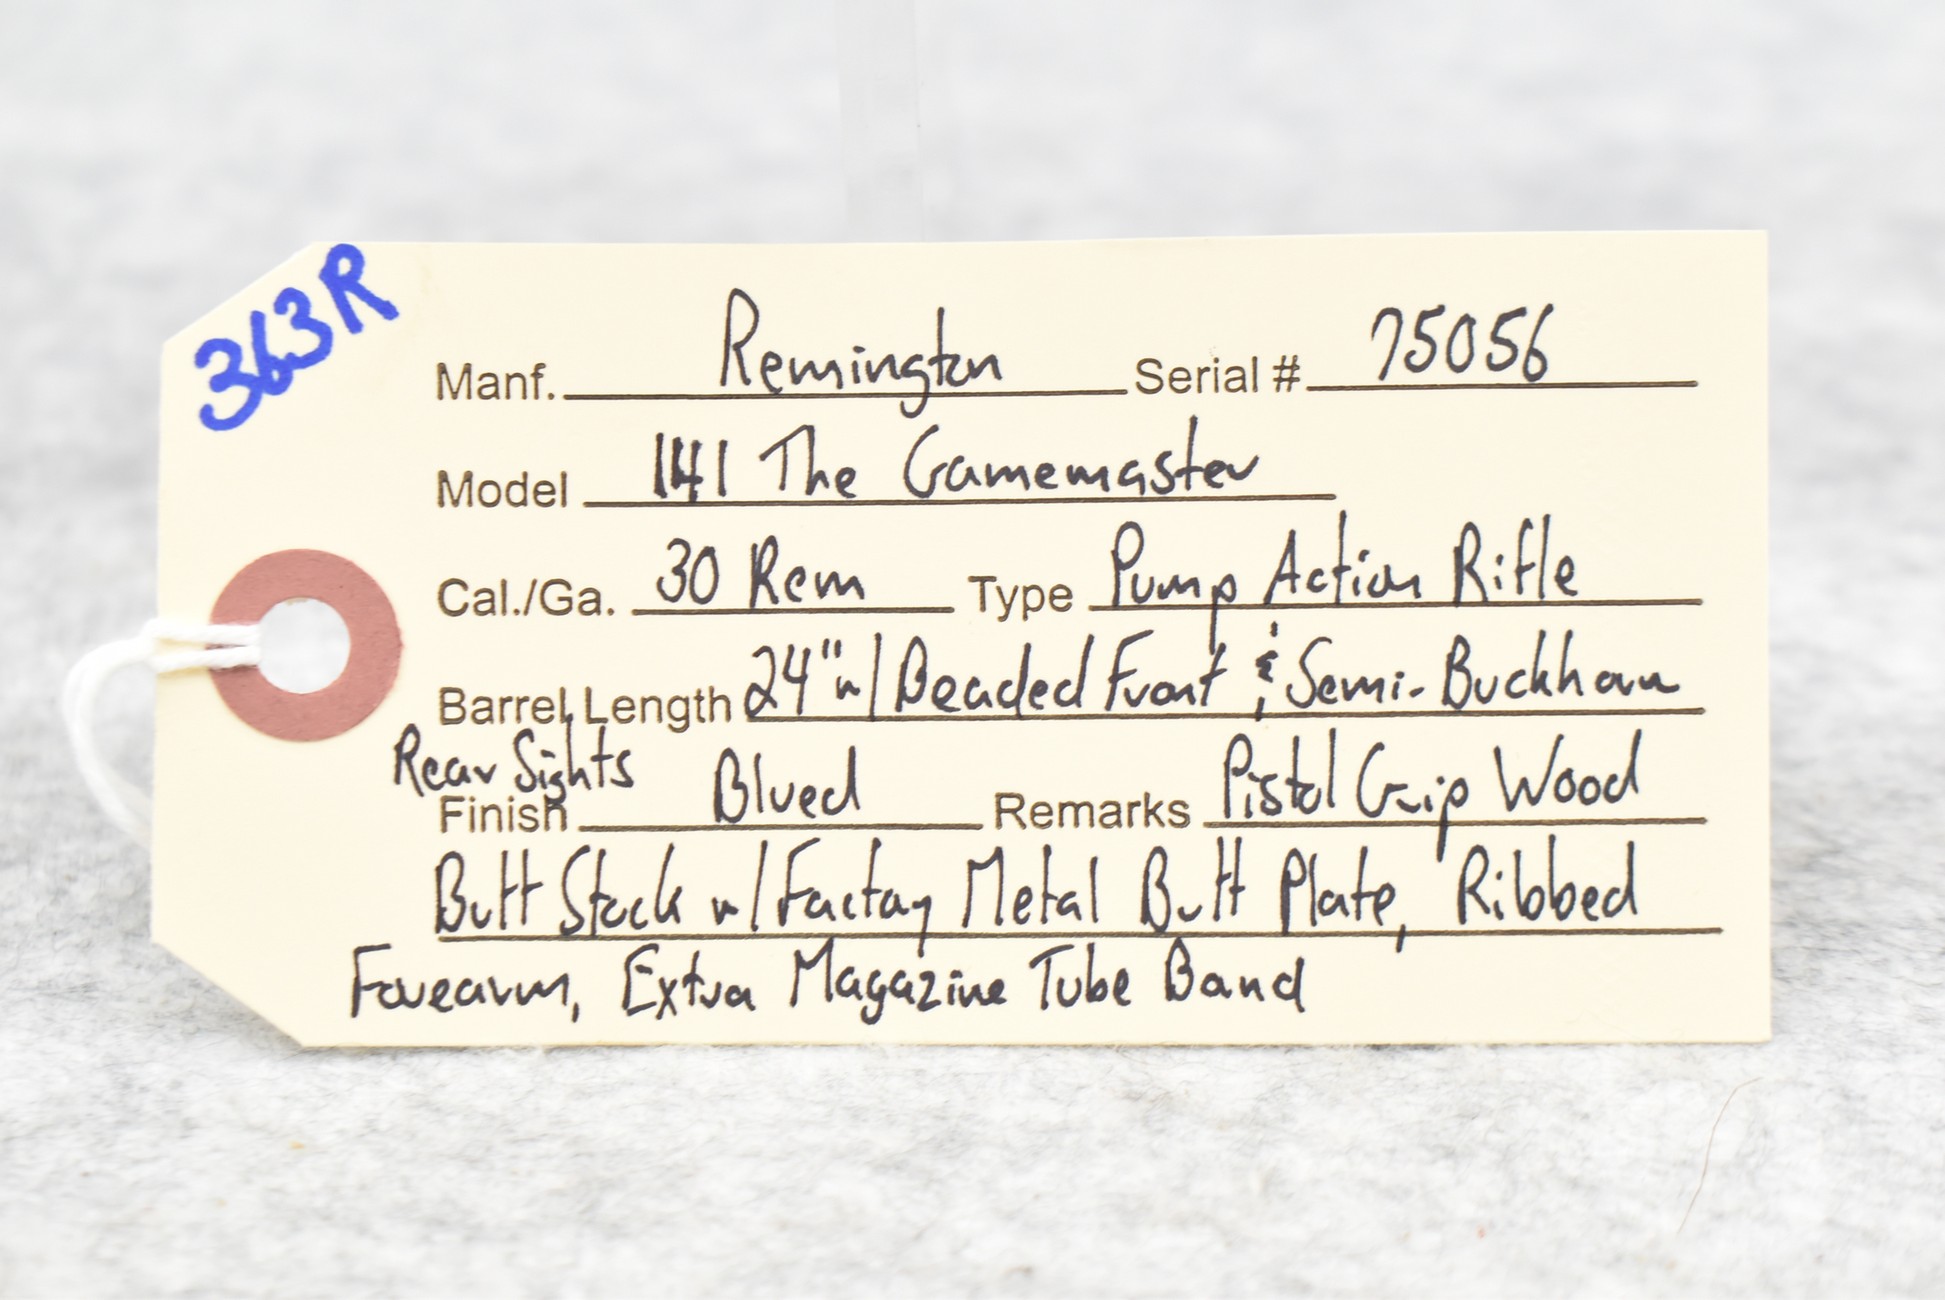 363R
Manf. Remington Serial # 75056
Model 141 The Gamemaster
Cal./Ga. 30 Rem Type Pump Action Rifle
Barrel Length 24" w/ Beaded Front & Semi-Buckhorn
Rear Sights
Finish Blued Remarks Pistol Grip Wood
Butt Stock w/ Factory Metal Butt Plate, Ribbed
Forearm, Extra Magazine Tube Band